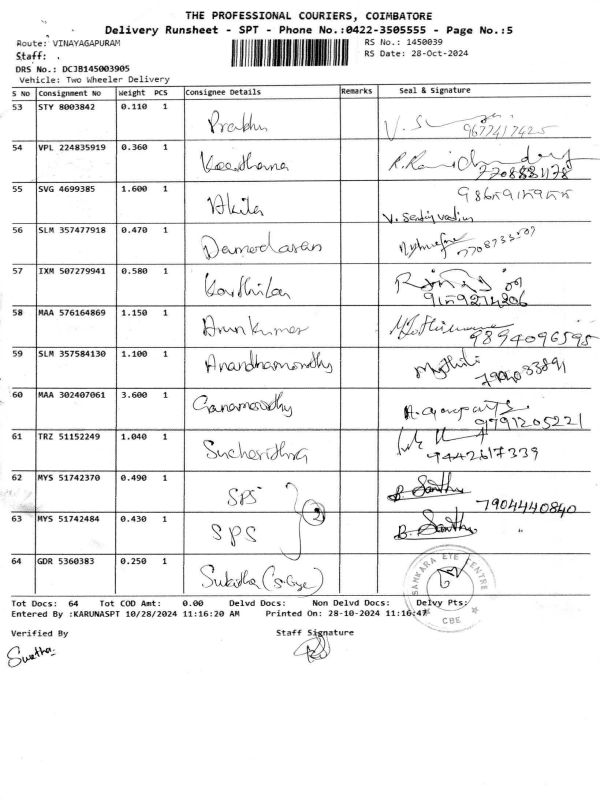 THE PROFESSIONAL COURIERS, COIMBATORE
Delivery Runsheet - SPT - Phone No.:0422-3505555 - Page No.:5
Route: VINAYAGAPURAM RS No.: 1450039
Staff: . RS Date: 28-Oct-2024
DRS No.: DCJB145003905
Vehicle: Two Wheeler Delivery
S No Consignment No Weight PCS Consignee Details Remarks Seal & Signature
53 STY 8003842 0.110 1
Prabhu 9677417425
54 VPL 224835919 0.360 1
Keerthana
55 SVG 4699385 1.600 1
Akila
56 SLM 357477918 0.470 1
Damodaran
57 IXM 507279941 0.580 1
Karthika 9159214206
58 MAA 576164869 1.150 1
Arunkumar 9894096595
59 SLM 357584130 1.100 1
Anandhamoorthy Mythili
60 MAA 302407061 3.600 1
Ganamoorthy 9791205221
61 TRZ 51152249 1.040 1
9442617339
62 MYS 51742370 0.490 1
SPS B. Santhu 7904440840
63 MYS 51742484 0.430 1
SPS 2 B. Santhu "
64 GDR 5360383 0.250 1
SANKARA EYE CENTRE
CBE
Tot Docs: 64 Tot COD Amt: 0.00 Delvd Docs: Non Delvd Docs: Delvy Pts:
Entered By :KARUNASPT 10/28/2024 11:16:20 AM Printed On: 28-10-2024 11:16:47
Verified By Staff Signature
Swetha